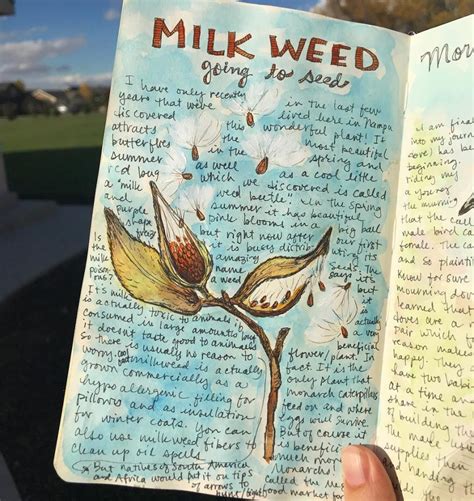 MILK WEED
going to seed
I have only recently in the last few
years that we've lived here in Nampa
discovered this wonderful plant! It
attracts the most beautiful
butterflies in the spring and
summer as well as a cool little
'd bug which we discovered is called
a "milk weed beetle". In the spring
and summer it has beautiful
purple pink blooms in a big ball
shape but right now after our first
it is busy distributing its
Is amazing seeds. The
the name says it's
milk a weed but
poisonous? it is
It's milk actually
is actually toxic to animals a very
consumed in large amounts beneficial
it doesn't taste good to animals flower/plant. In
so there is usually no reason to fact. It is the
worry. milkweed is actually only plant that
grown commercially as a monarch caterpillars
hypo allergenic filling for feed on and where
pillows and as insulation eggs will survive.
for winter coats. You can But of course it
also use milkweed fibers to is benefic
clean up oil spills much more
But natives of South America Monarch!
and Africa would put it on tips called the
of arrows to hunt/
Mour
I am final
into my journ
beginning.
riding my
a yo
the
that the call
male bird ca
female. The ca
and so plaintif
know for sure
mourning do
learned that
doves are a
pair which
reason mak
happy. They
have two bab
at a time an
share in the
of building th
the male
supplies
then he